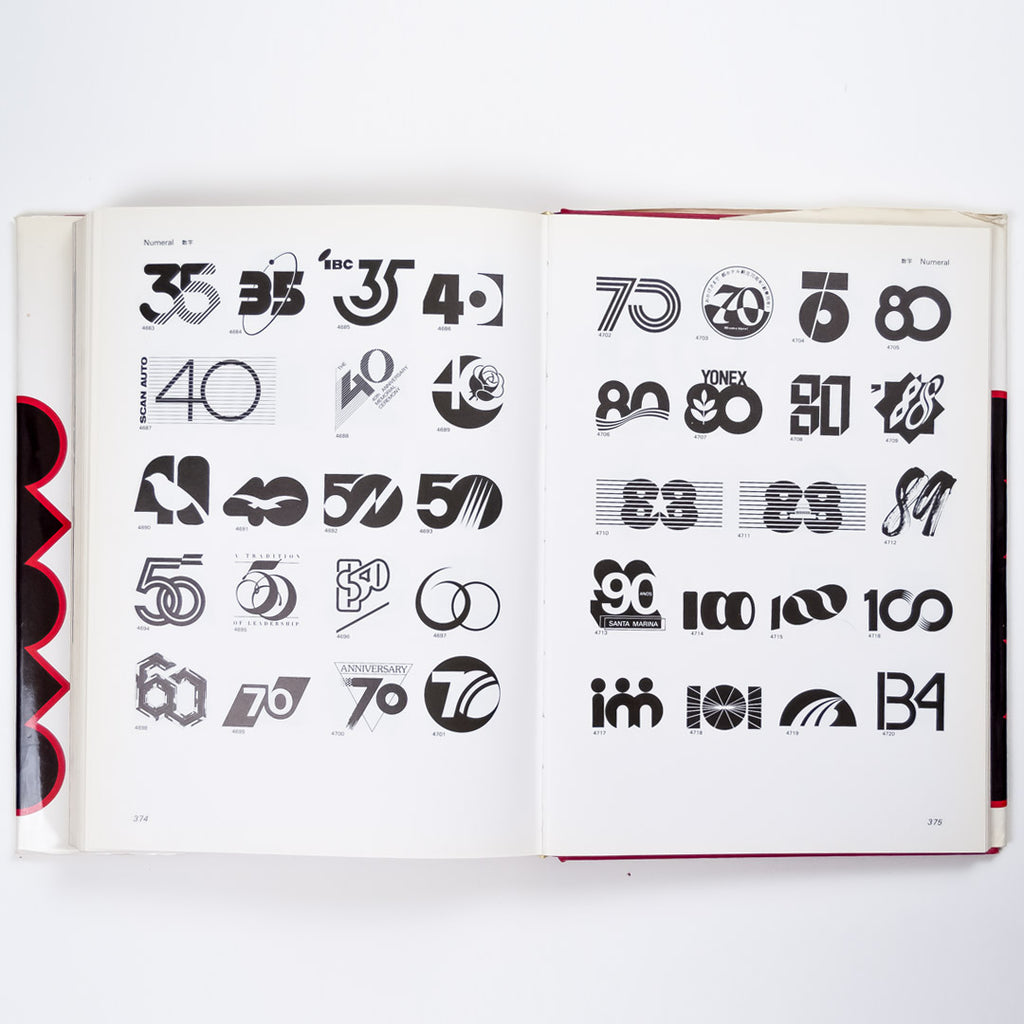 Numeral 数字
35
35
IBC 35
40
4683
4684
4685
4686
SCAN AUTO 40
THE 40
40TH ANNIVERSARY
MEMORIAL
CEREMONY
40
4687
4688
4689
40
40
50
50
4690
4691
4692
4693
50
A TRADITION
50
OF LEADERSHIP
50
60
4694
4695
4696
4697
60
70
ANNIVERSARY
70
70
4698
4699
4700
4701
374
数字 Numeral
70
70
75
80
4702
4703
4704
4705
80
YONEX
80
80
88
4706
4707
4708
4709
88
89
89
4710
4711
4712
90
ANOS
SANTA MARINA
100
100
100
4713
4714
4715
4716
100
101
134
4717
4718
4719
4720
375